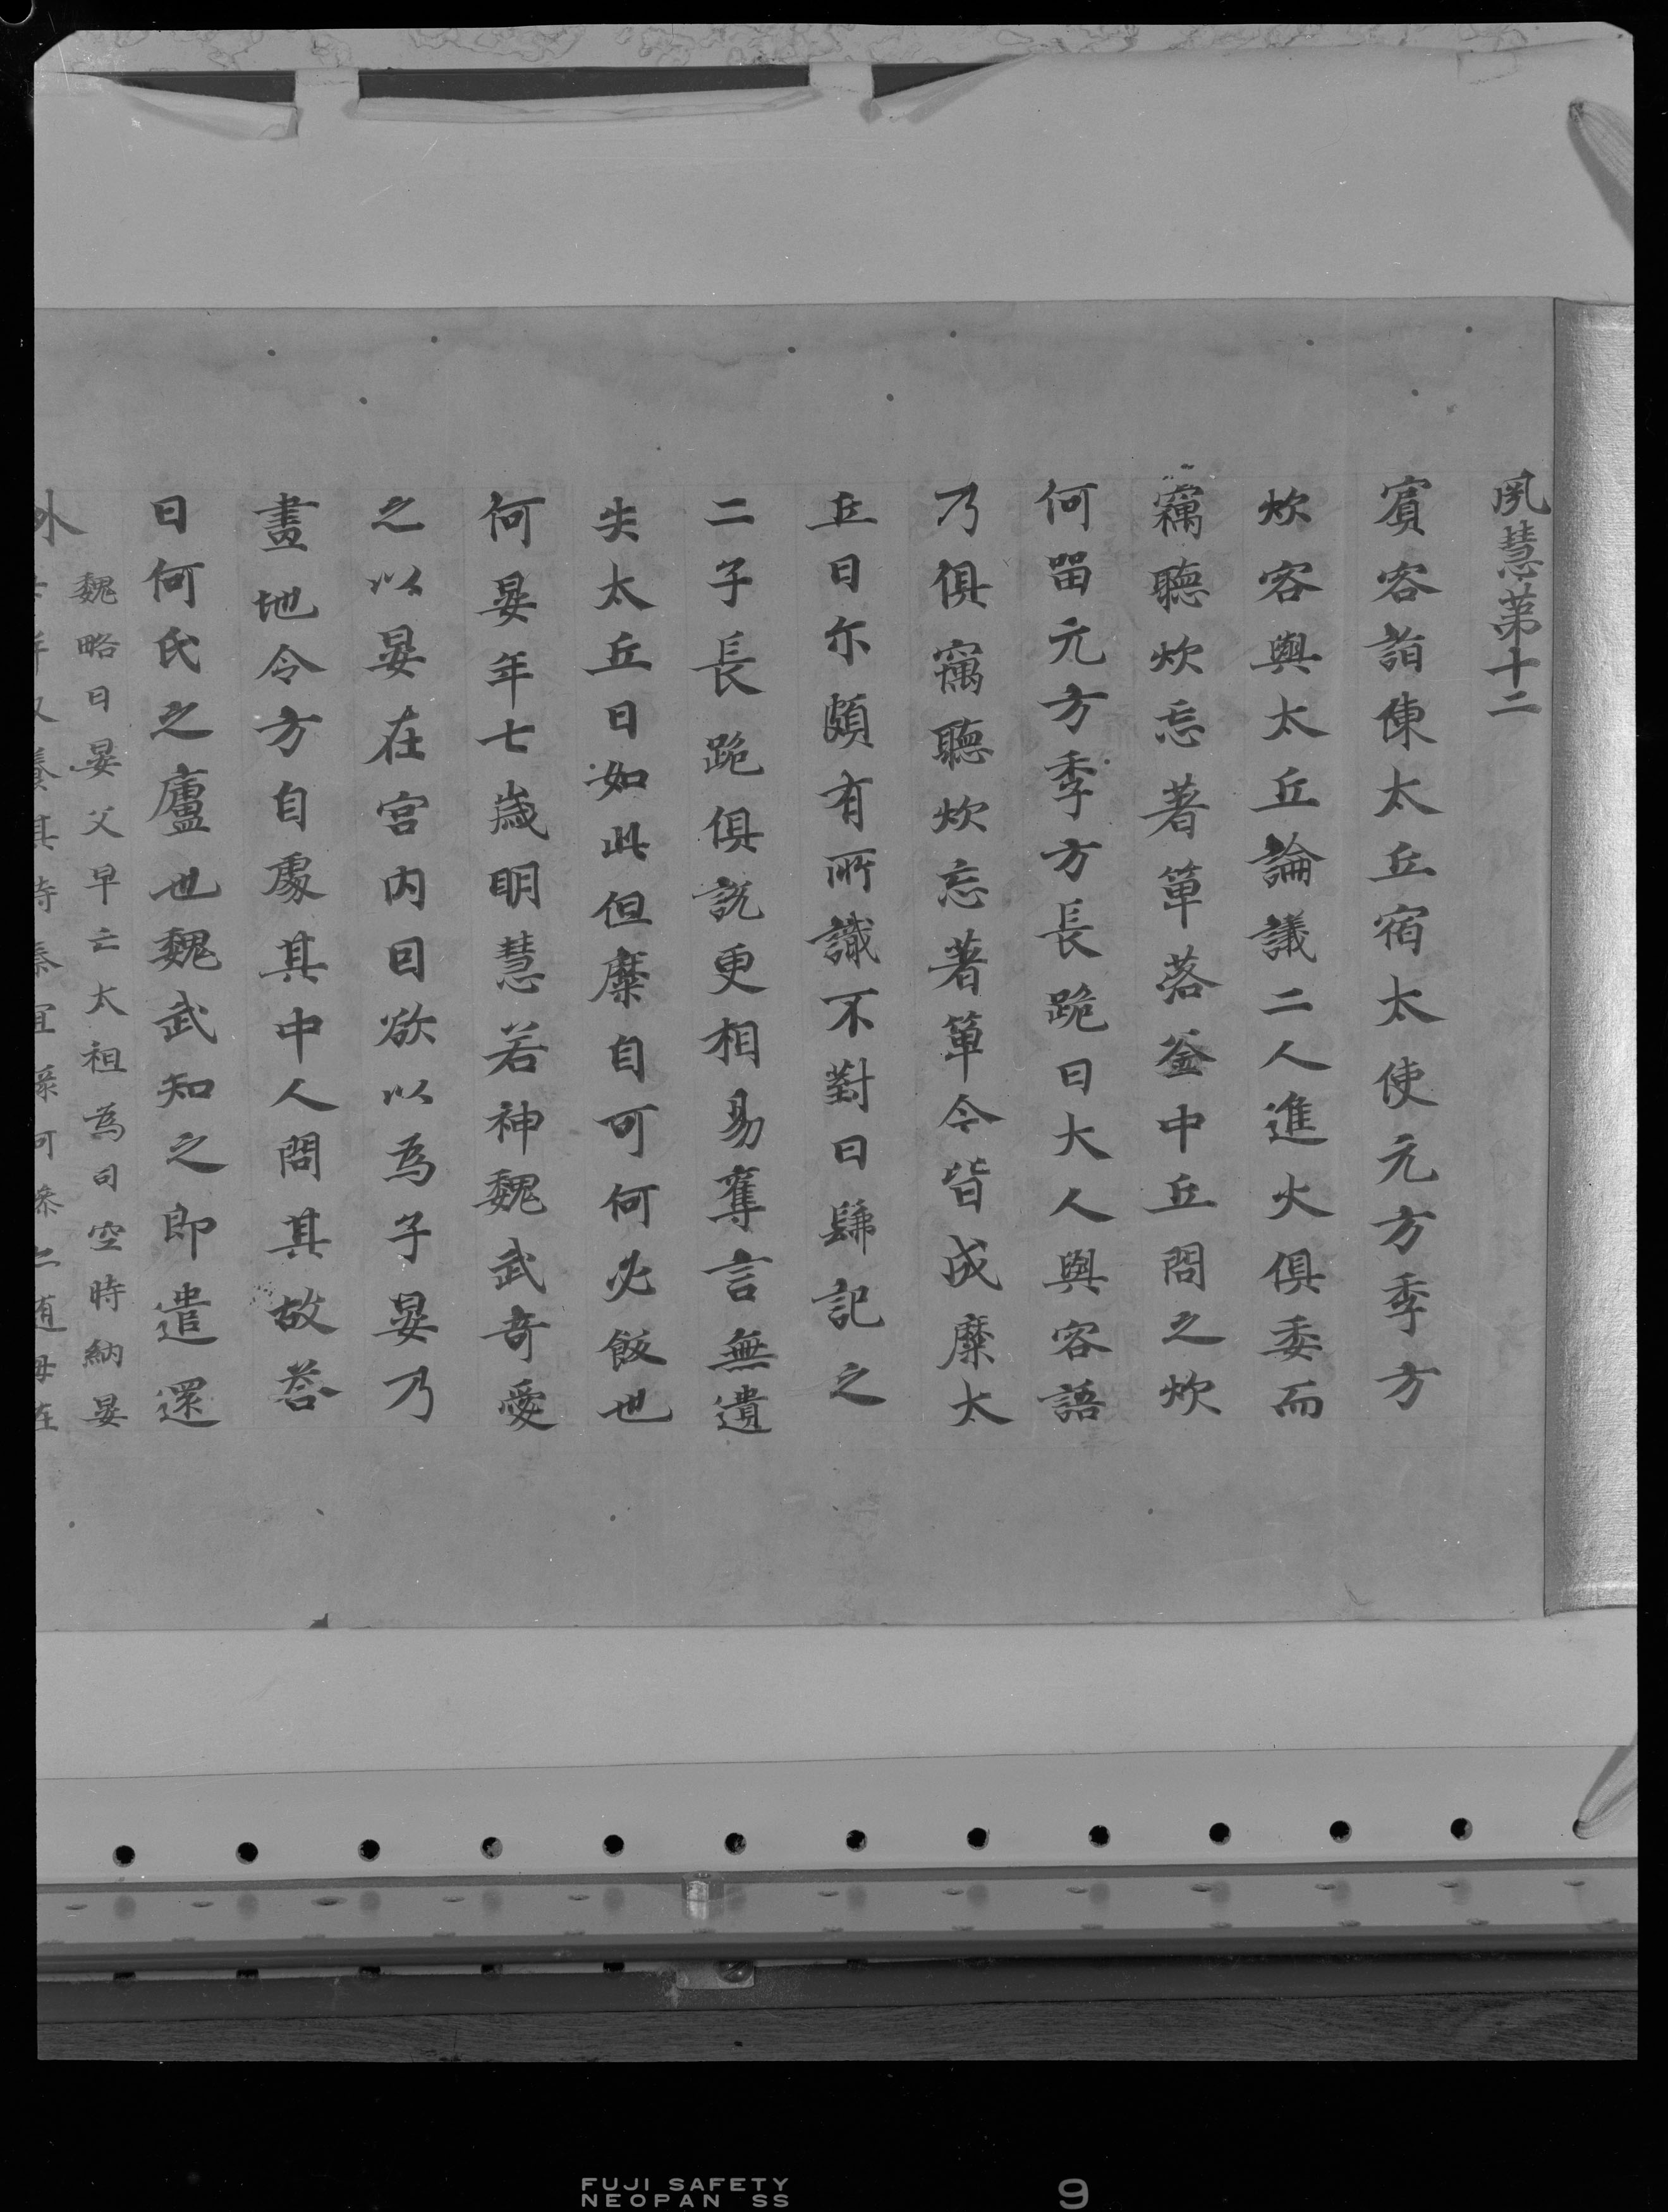 夙慧第十二
賓客詣陳太丘宿太使元方季方
炊客與太丘論議二人進火俱委而
竊聽炊忘著箄落釜中丘問之炊
何留元方季方長跪曰大人與客語
乃俱竊聽炊忘著箄令皆成糜太
丘曰尓頗有所識不對曰髣記之
二子長跪俱説更相易奪言無遺
失太丘曰如此但糜自可何必飯也
何晏年七歳明慧若神魏武奇愛
之以晏在宮内因欲以為子晏乃
畫地令方自處其中人問其故荅
曰何氏之廬也魏武知之即遣還
魏略曰晏父早亡太祖為司空時納晏
外
FUJI SAFETY
NEOPAN SS
9